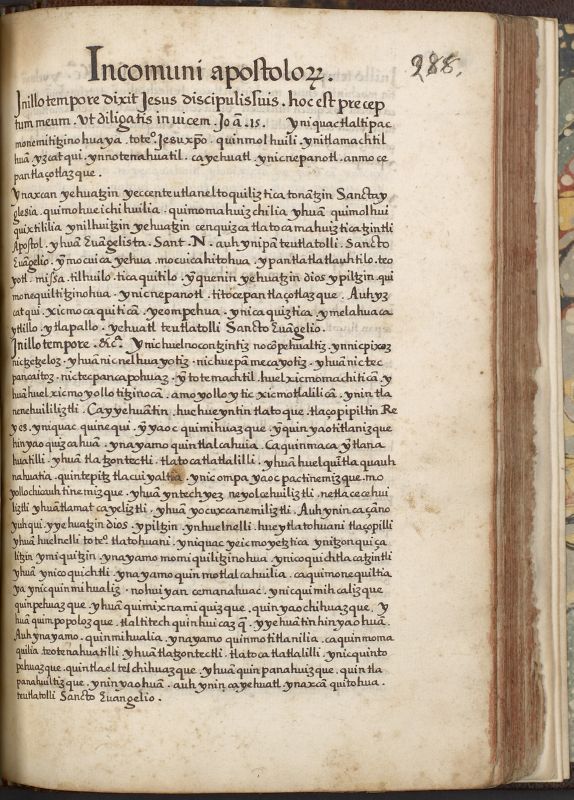 Incomuni apostoloꝝ. 288.
Inillo tempore dixit Jesus discipulis suis. hoc est precep
tum meum. Vt diligatis in uicem. Jo ā. 15. yniquac tlaltipac
monemitiẑinohuaya. toteᵒ. Jesu xp̄o. quinmolhuili. ynitlamachtil
huā. yẑcatqui. ynnotenahuatil. ca yehuatl. ynicnepanotl. anmoce
pantlaçotlaẑque.
ynaxcan yehuatẑin yeccenteutlaneltoquiliẑtica tonātẑin Sanctay
glesia. quimohueichihuilia. quimomahuiẑchilia yhuā. quimolhui
quixtililia ynilhuitẑin yehuatẑin cenquiẑca tlatocamahuiẑticatẑintli
Apostol. yhuā Euāgelista. Sant. N. auh ynipā teutlatolli. Sancto
Euāgelio. ȳmocuica yehua. mocuicahitohua. ypantlatlatlauhtilo. teo
yotl. missa. tilhuilo. ticaquitilo. ȳquenin yehuatẑin dios ypiltẑin. qui
monequiltiẑinohua. ynicnepanotl. titocepantlaçotlaẑque. Auhyẑ
catqui. xicmocaquiticā. yeompehua. ynicaquiẑtica. ymelahuaca
ytlillo. ytlapallo. yehuatl teutlatolli Sancto Euāgelio.
Inillo tempore. &cᵃ. ynichuelnocontẑintiẑ nocōpehualtiẑ. ynnicpixoẑ
nictẑetẑeloẑ. yhuā nicnelhuayotiẑ. nichuepāmecayotiẑ. yhuā nictec
pancaitoẑ. nictecpancapohuaẑ. ȳtotemachtil. huelxicmomachiticā. y
huā huel xicmoyollotiẑinocā. amoyolloytic xicmotlalilicā. ynintla
nenehuililiẑtli. Cayyehuātin. huehueyntin tlatoque. tlaçopipiltin Re
yes. yniquac quinequi. ȳyaoc quimihuaẑque. yquin yaotitlaniẑque
hin yaoquiẑcahuā. ynayamo quintlalcahuia. Caquinmaca ȳtlana
huatilli. yhuā tlatẑontectli. tlatocatlatlalilli. yhuā huelquītla quauh
nahuatia. quintepitẑ tlacuiyaltia. ynic ompa yaoc pactinemiẑque. mo
yollochicauhtinemiẑque. yhuā yntechyeẑ neyolcehuiliẑtli. netlacecehui
liẑtli yhuā tlamatcayeliẑtli. yhuā yocuxcanemiliẑtli. Auhyninca çano
yuhqui. yyehuatẑin dios. ypiltẑin. ynhuelnelli. hueytlatohuani tlaçopilli
yhuā huelnelli toteᵒ. tlatohuani. yniquac yeicmoyetẑtica ynitẑonquiça
litẑin ymiquitẑin. ynayamo momiquiliẑinohua yniccquichtlacatẑintli
yhuā ynicoquichtli. ynayamo quinmotlalcahuilia. ca quimonequiltia
ya ynicquinmihualiẑ. nohuiyan cemanahuac. yniquimihcaliẑque
quinpehuaẑque. yhuā quimixnamiquiẑque. quinyaochihuaẑque. y
huā quimpopoloẑque. tlaltitech quinhuicaẑq̄. yyehuātin hinyaohuā.
Auhynayamo. quinmihualia. ynayamo quinmotitlanilia. caquinmoma
quilia. teotenahuatilli. yhuā tlatẑontectli. tlatocatlatlalilli. ynicquinto
pehuaẑque. quintlaeltelchihuaẑque. yhuā quinpanahuiẑque. quintla
panahuiltiẑque. yninyaohuā. auh ynin cayehuatl. ynaxcā quitohua.
teutlatolli Sancto Euangelio.